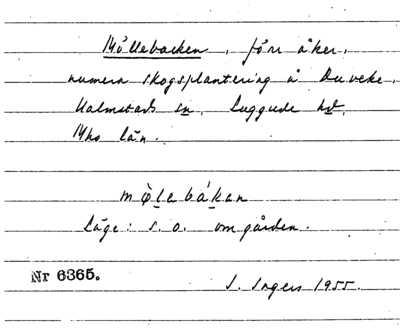 Möllebacken, förr åker,
numera skogsplantering å Duveke,
Halmstads sn, Luggude hd,
Mhs län.
møl̠ebákan
Läge: s.o. om gården.
Nr 6365.
I. Ingers 1955.